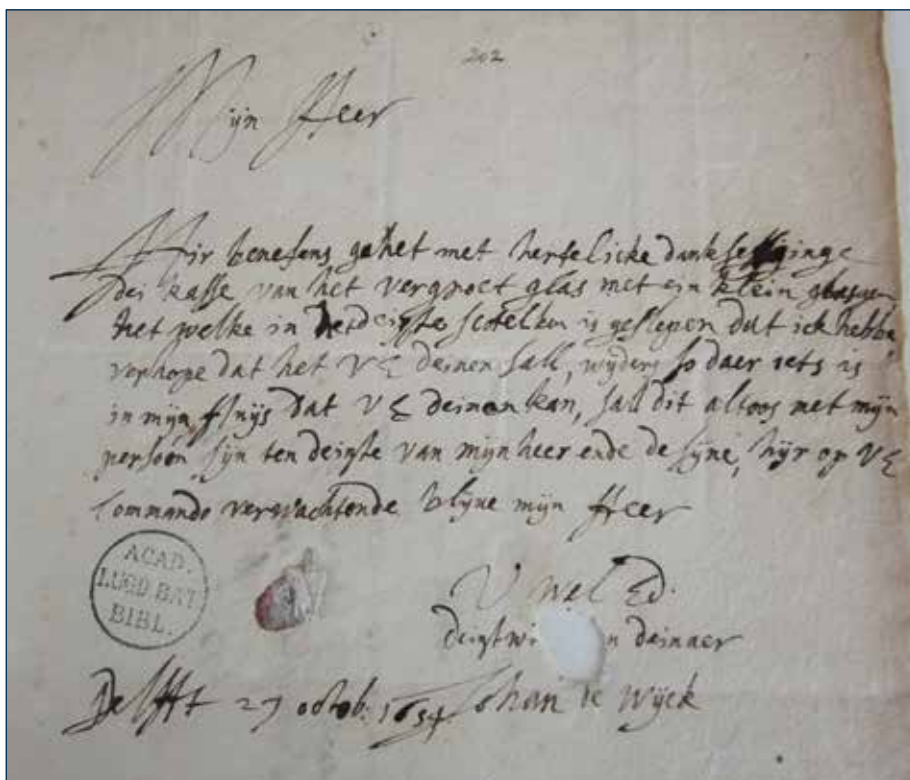 202
Mijn Heer
Hir benefens gehet met hertelicke dankseginge
dei kasse van het vergroet glas met ein klein
het welke in deiste scotelken is geslepen dat ick hebbe,
verhope dat het VE deinen sall, wyders so daer iets is
in mijn huijs dat VE deinen kan, sall dit altoos met mijn
persoon sijn ten deinste van mijn heer ende de syne, hijr op VE
Commando verwachtende blijve mijn Heer
V wel Ed.
deinaer
Delfft 27 octob: 1654 Johan de Wijck
ACAD.
LUGD BAT
BIBL.